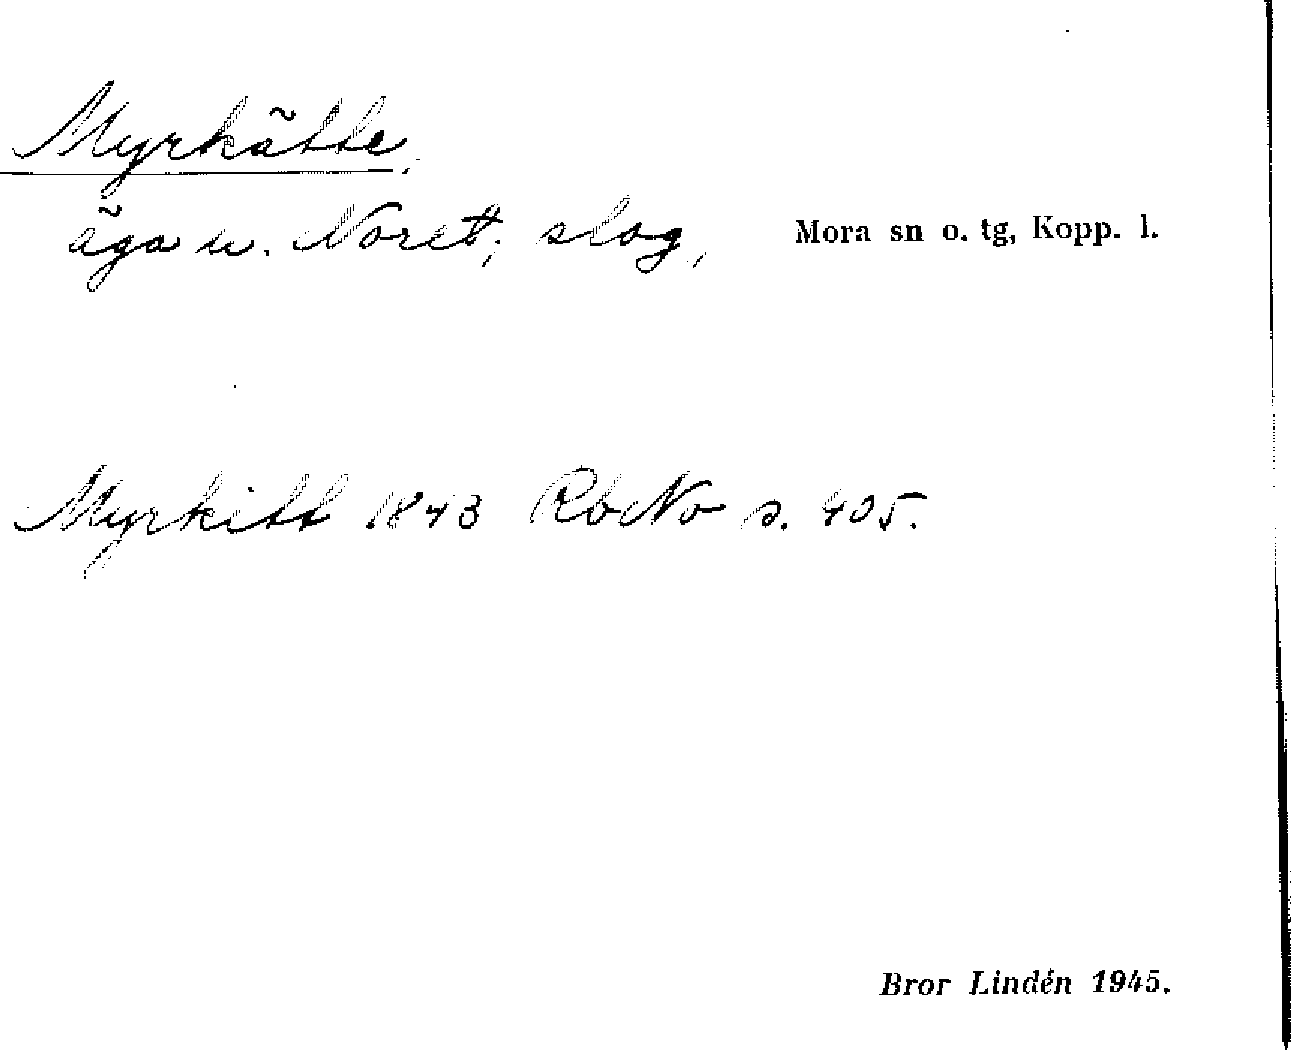 Myrkätte.
äga u. Noret, slog, Mora sn o. tg, Kopp. l.
Myrkitt 1843 RbNo s. 405.
Bror Lindén 1945.